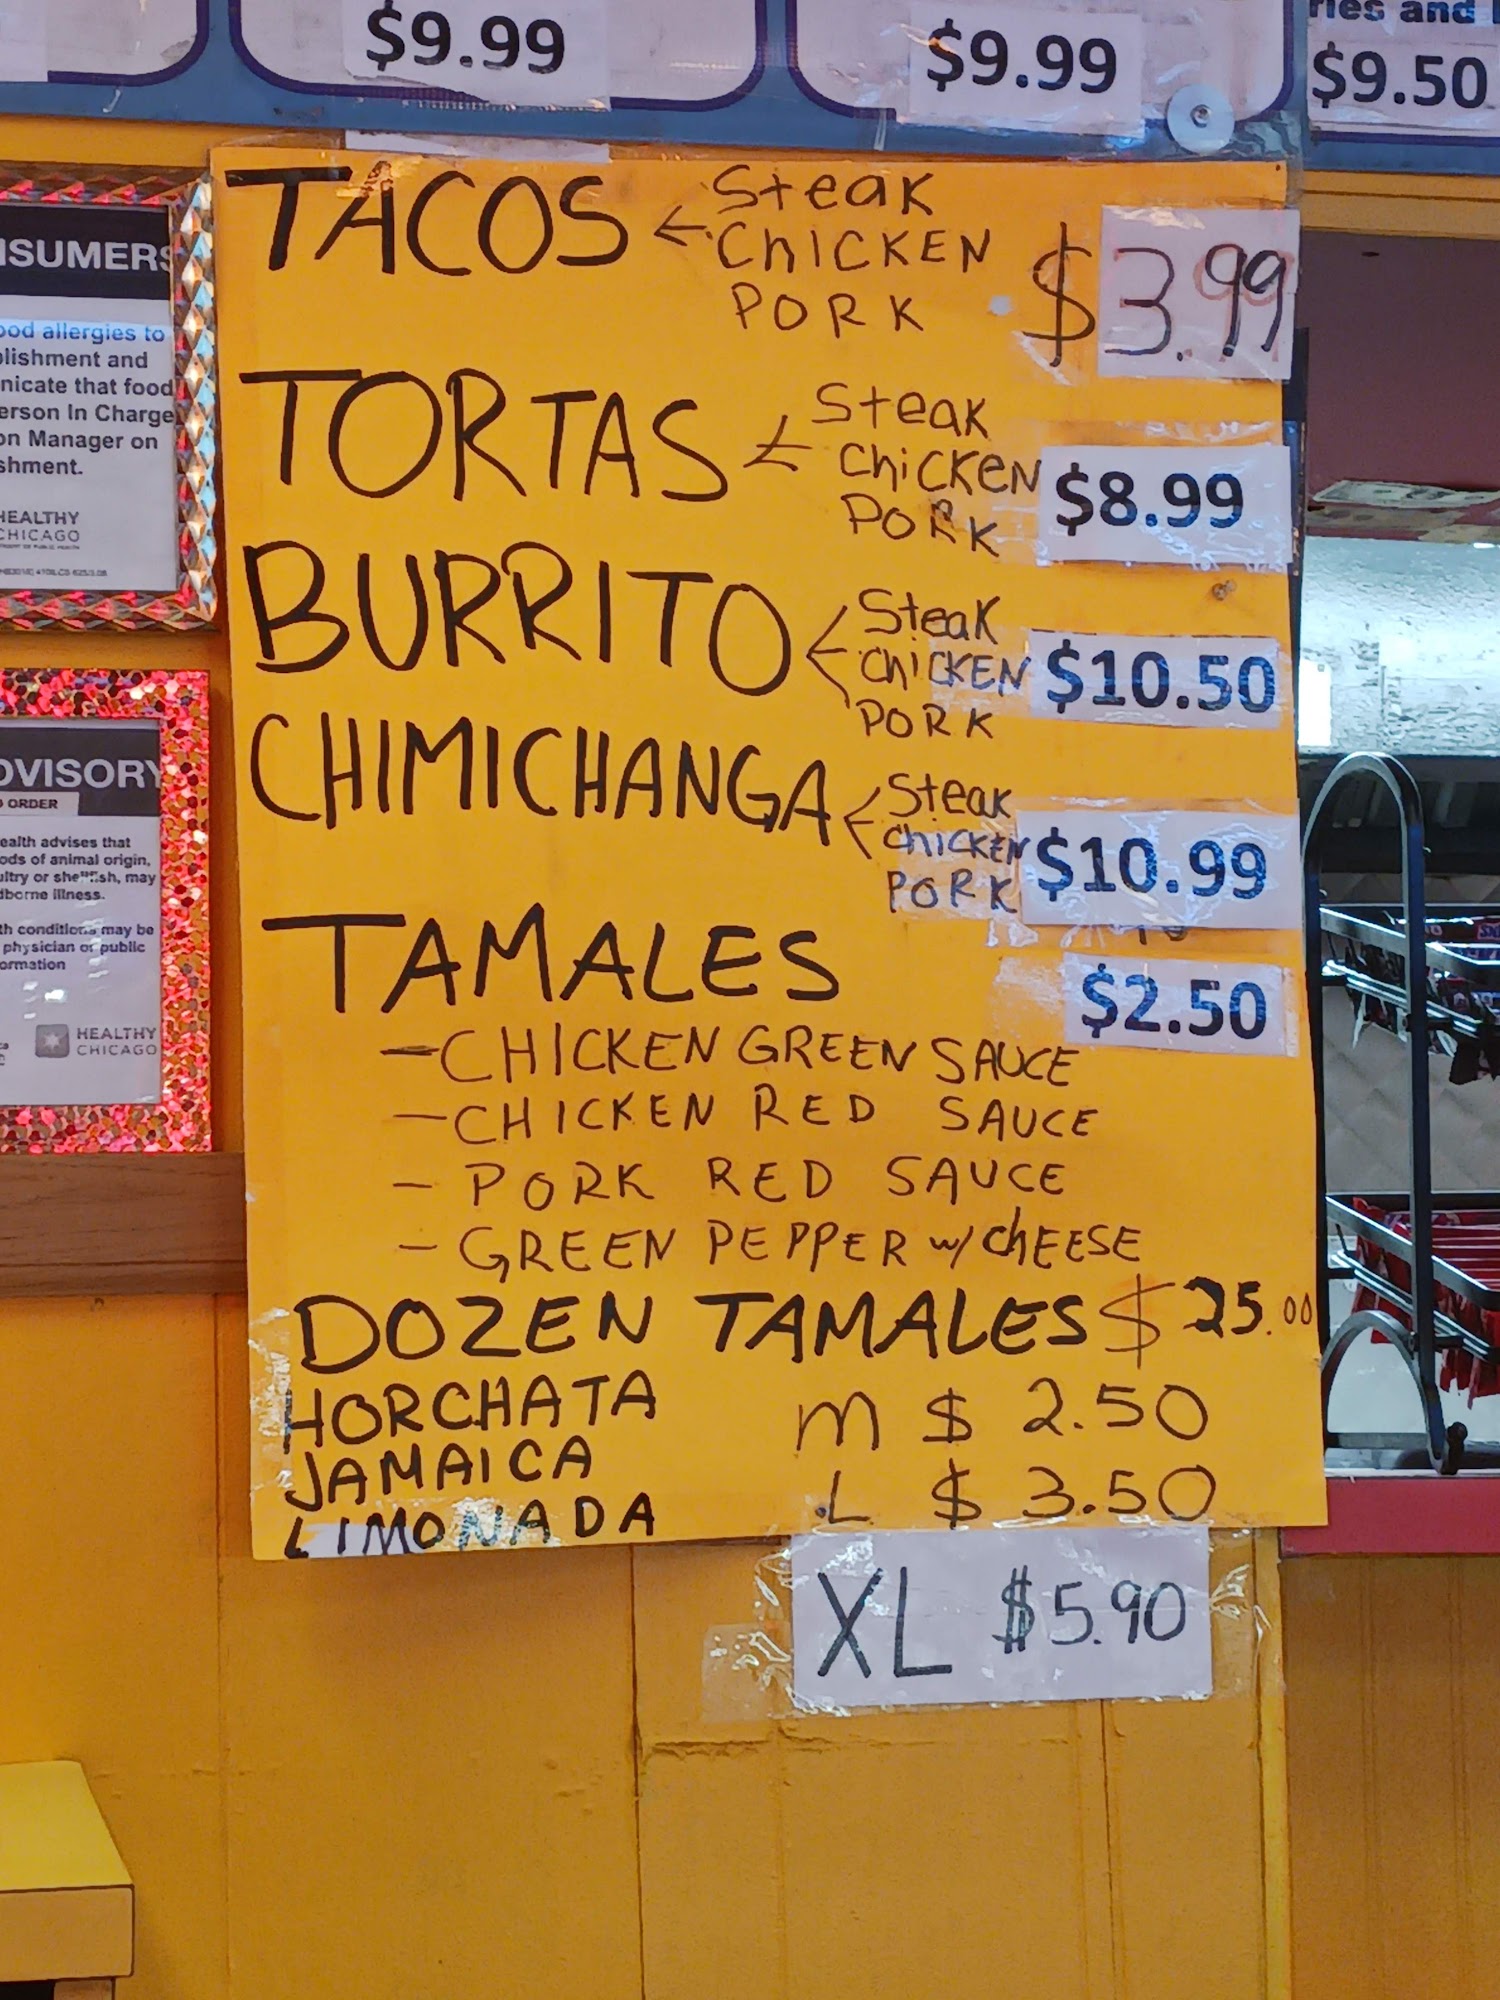 $9.99
$9.99
ries and
$9.50
TACOS
Steak
ChICKEN
PORK
$3.99
TORTAS
Steak
ChiCKeN
PORK
$8.99
BURRITO
Steak
ChICKEN
PORK
$10.50
CHIMICHANGA
Steak
ChICKEN
PORK
$10.99
TAMALES
$2.50
- CHICKEN GREEN SAUCE
- CHICKEN RED SAUCE
- PORK RED SAUCE
- GREEN PEPPER w/ ChEESE
DOZEN TAMALES $25.00
HORCHATA M $ 2.50
JAMAICA
LIMONADA L $ 3.50
XL $5.90
NSUMERS
ood allergies to
blishment and
nicate that food
erson In Charge
on Manager on
shment.
HEALTHY
CHICAGO
DVISORY
ORDER
ealth advises that
ods of animal origin,
ultry or shellfish, may
dborne illness.
th conditions may be
physician or public
ormation
HEALTHY
CHICAGO